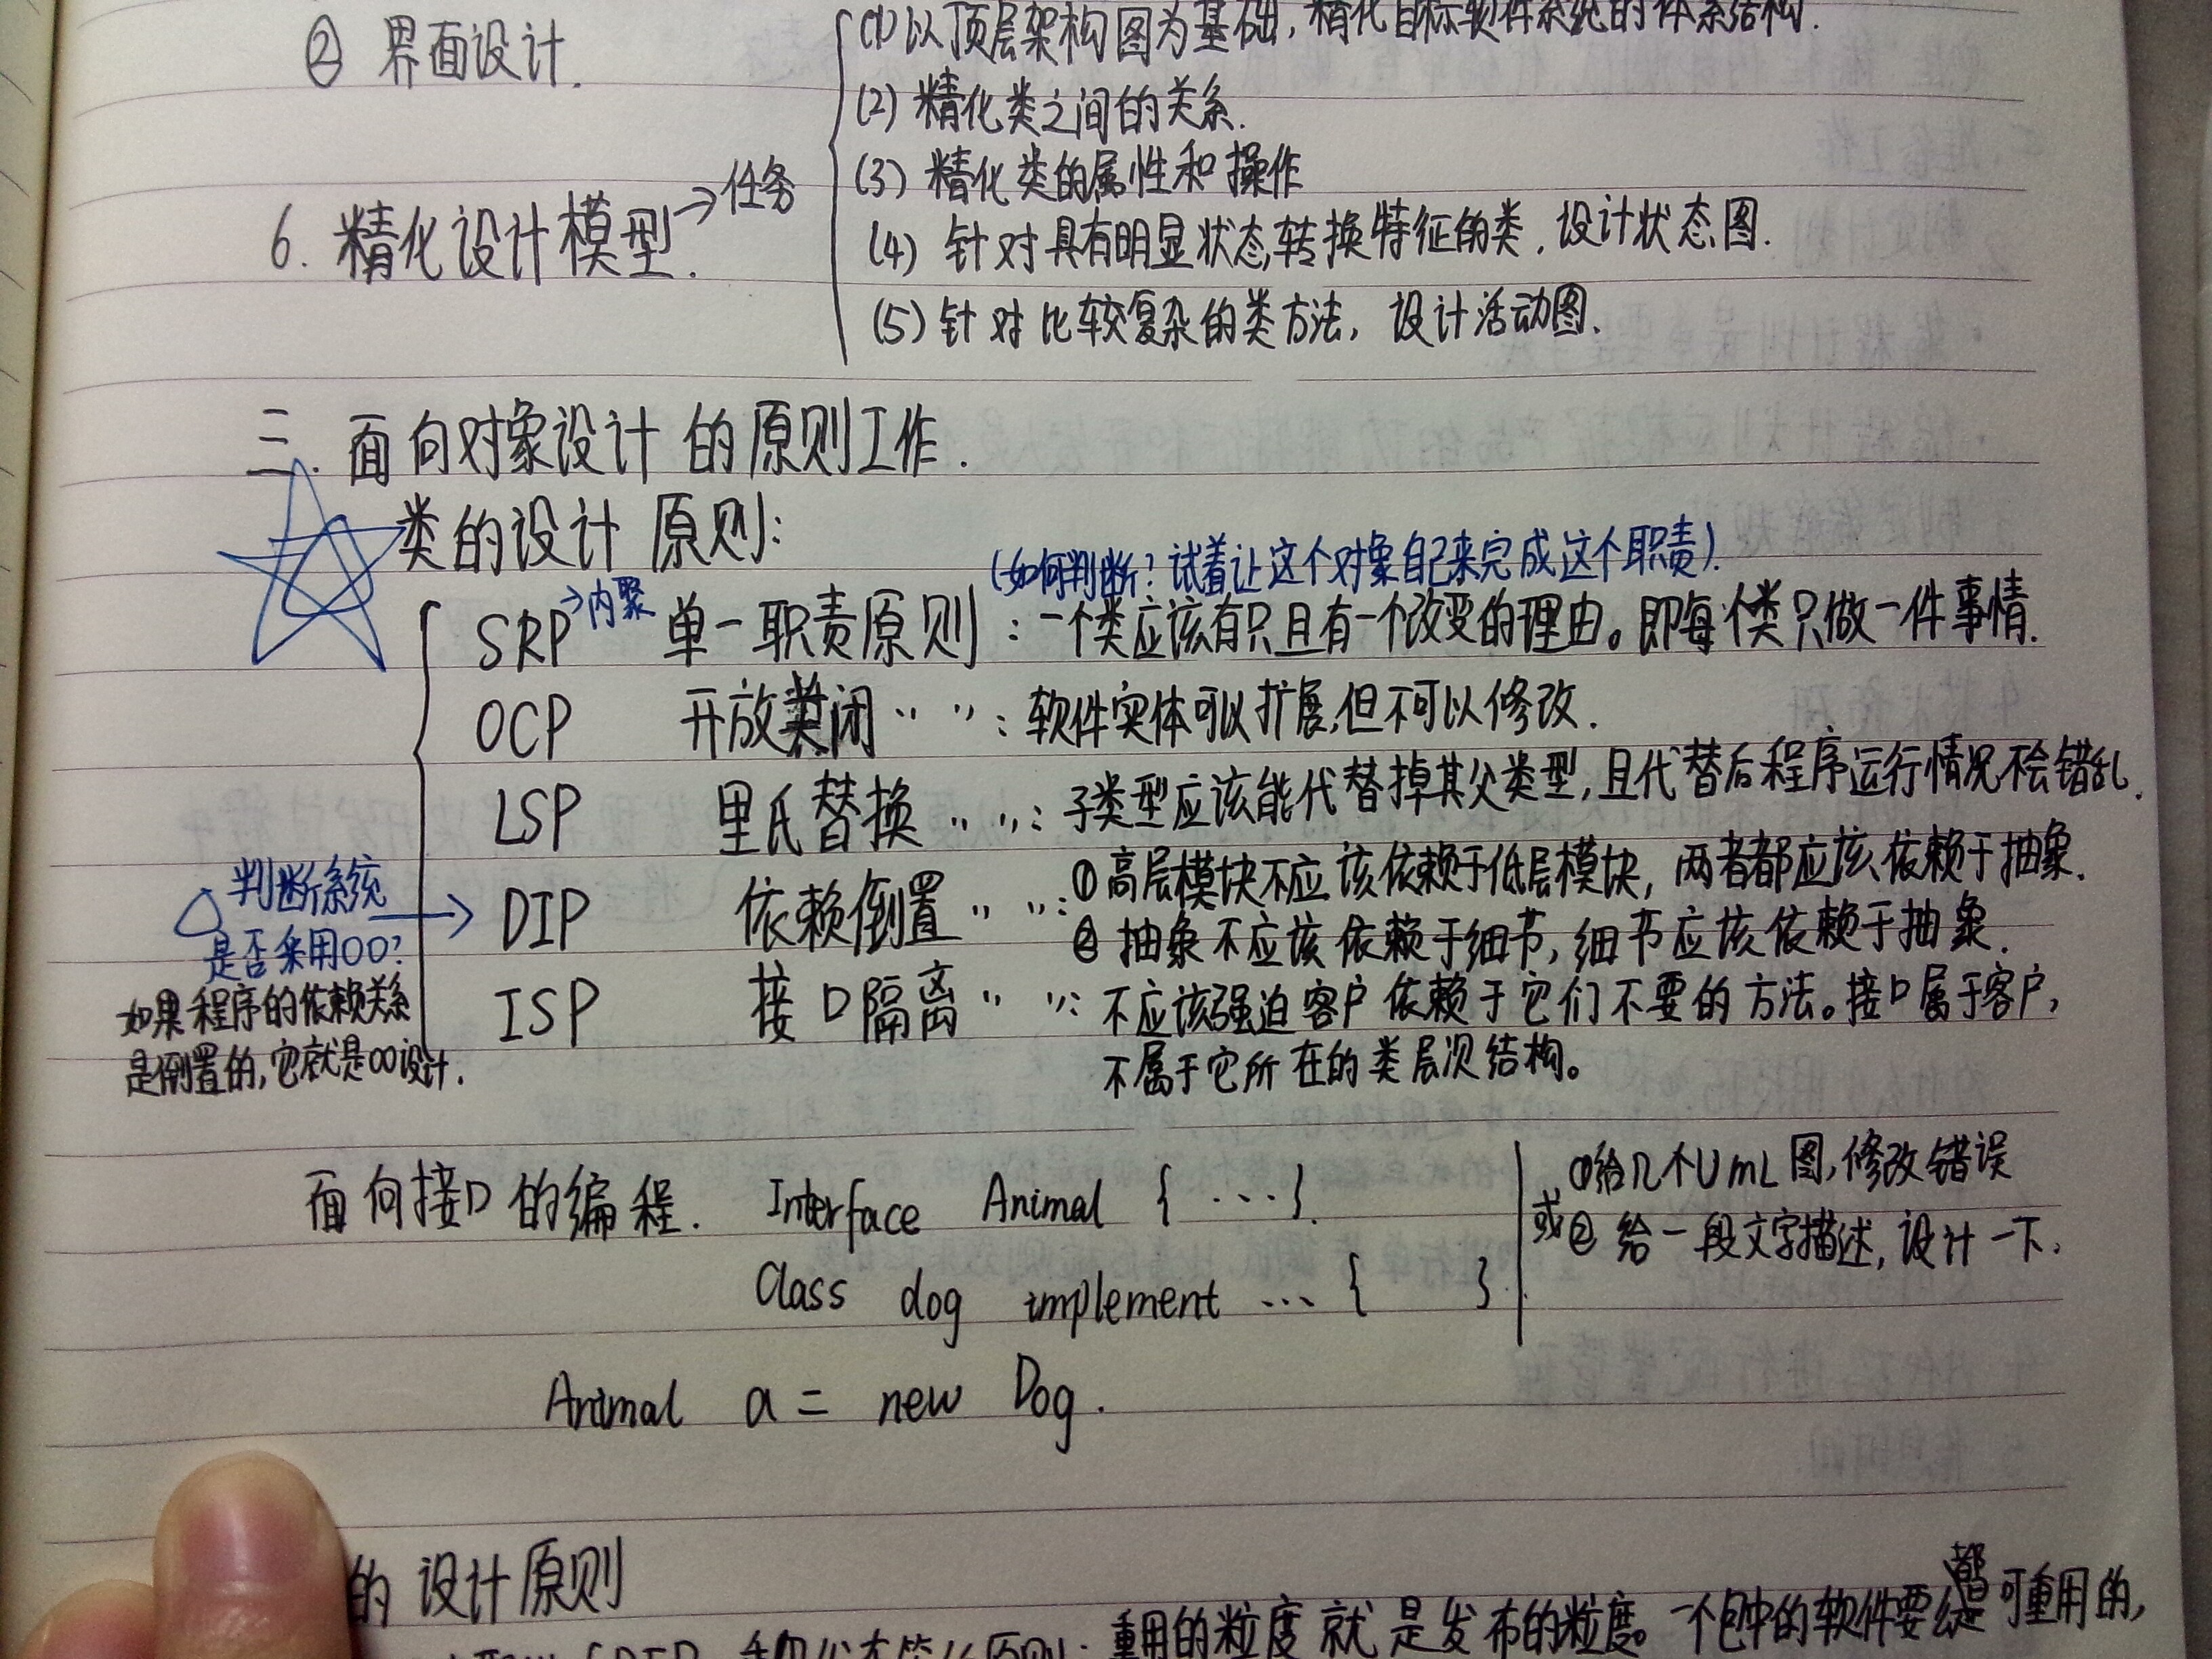 ② 界面设计.
(1) 以顶层架构图为基础, 精化目标软件系统的体系结构.
(2) 精化类之间的关系.
(3) 精化类的属性和操作
6. 精化设计模型. →任务
(4) 针对具有明显状态转换特征的类, 设计状态图.
(5) 针对比较复杂的类方法, 设计活动图.
二. 面向对象设计的原则工作.
类的设计原则:
(如何判断? 试着让这个对象自己来完成这个职责).
SRP →内聚 单一职责原则: 一个类应该有只且有一个改变的理由。即每个类只做一件事情.
OCP 开放关闭 〃 〃: 软件实体可以扩展,但不可以修改.
LSP 里氏替换 〃 〃: 子类型应该能代替掉其父类型, 且代替后程序运行情况不会错乱.
判断系统
是否采用OO?
→ DIP 依赖倒置 〃 〃: ①高层模块不应该依赖于低层模块, 两者都应该依赖于抽象.
② 抽象不应该依赖于细节, 细节应该依赖于抽象.
如果程序的依赖关系
是倒置的, 它就是OO设计.
ISP 接口隔离 〃 〃: 不应该强迫客户依赖于它们不要的方法。接口属于客户,
不属于它所在的类层次结构。
面向接口的编程. Interface Animal { ...}.
Class dog implement ... { }
Animal a = new Dog.
①给几个UmL图, 修改错误
或② 给一段文字描述, 设计一下.
的设计原则
重用的粒度就是发布的粒度。一个包中的软件要么都是可重用的,